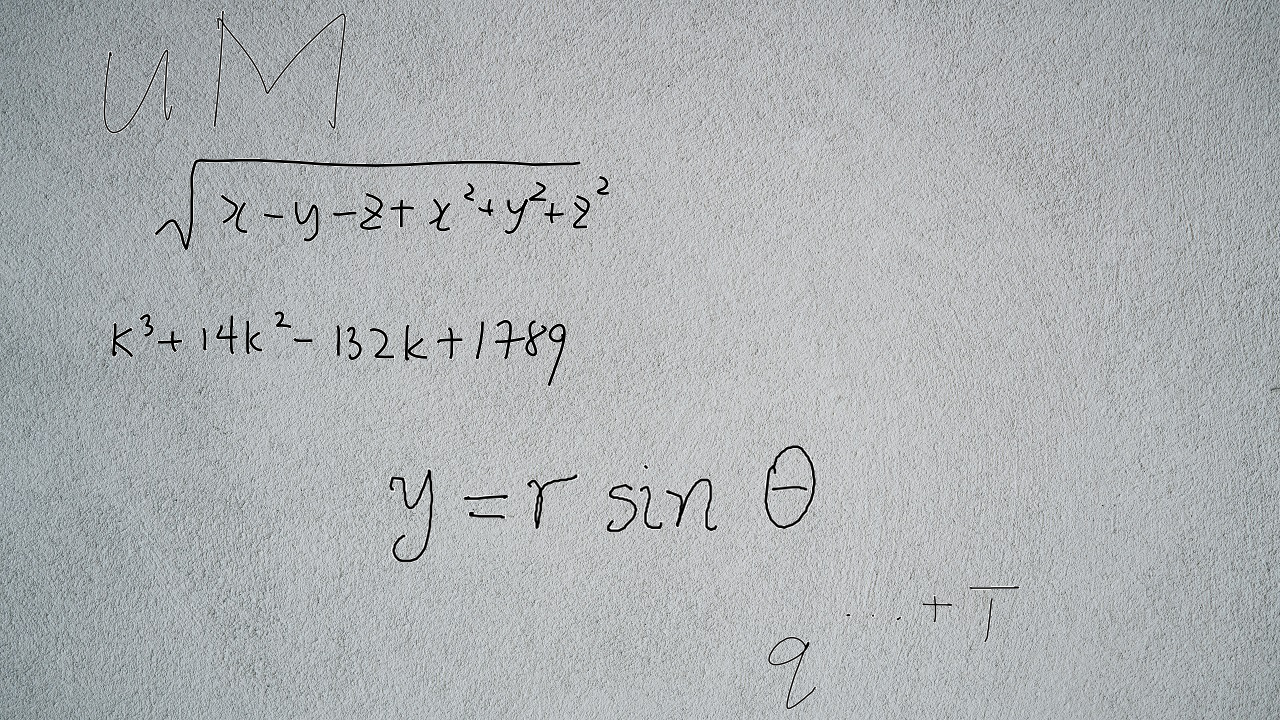 uM
√(x-y-z+x²+y²+z²)
k³+14k²-132k+1789
y=r sin θ
q^{...+T}